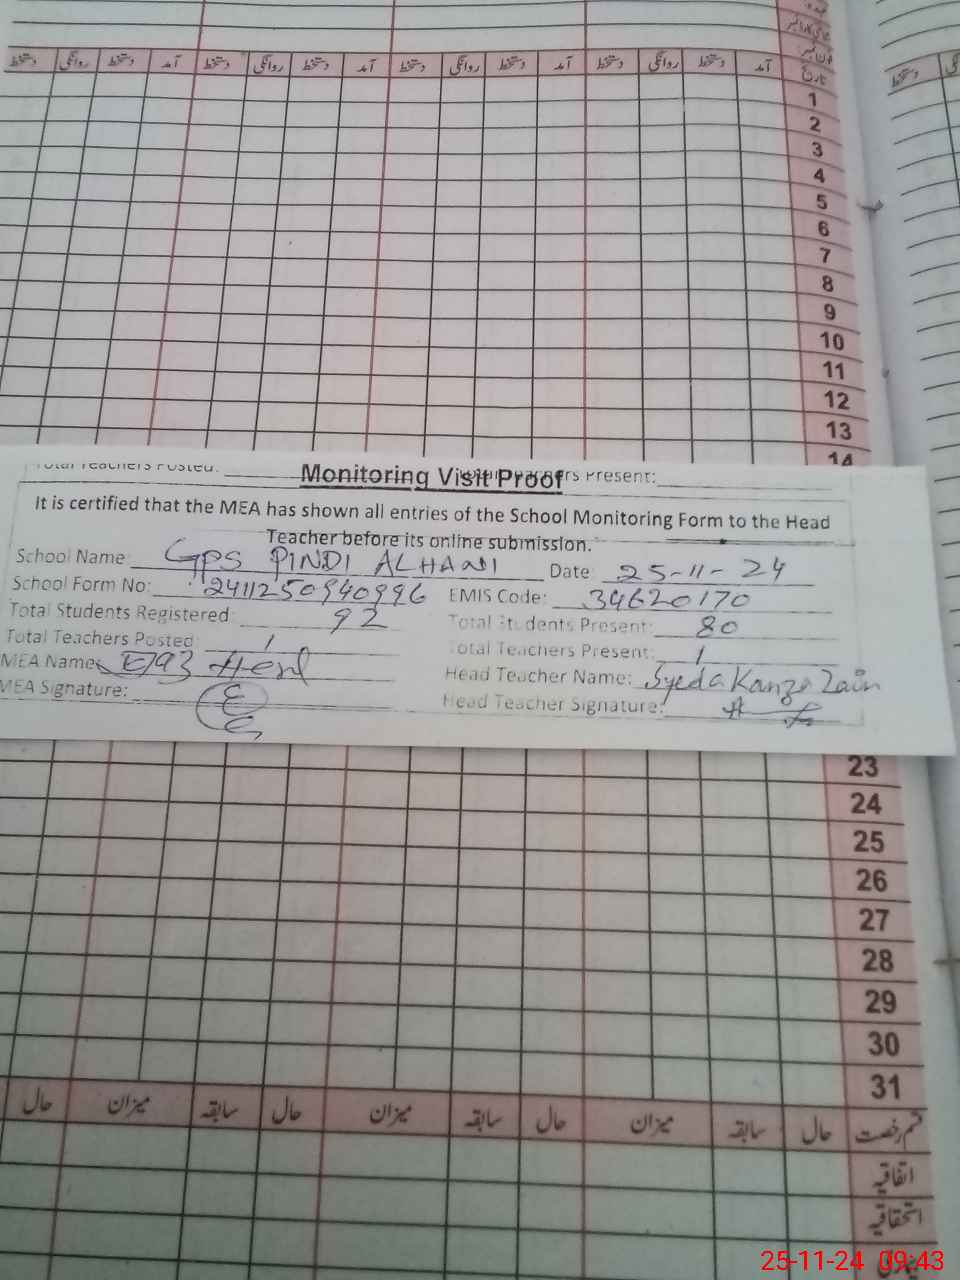 دستخط روانگی دستخط آمد دستخط روانگی دستخط آمد دستخط روانگی دستخط آمد دستخط روانگی دستخط آمد تاریخ
دستخط
1
2
3
4
5
6
7
8
9
10
11
12
13
14
Total Teachers Posted: Present:
Monitoring Visit Proof
It is certified that the MEA has shown all entries of the School Monitoring Form to the Head
Teacher before its online submission.
School Name: GPS PINDI ALHANI Date: 25-11-24
School Form No: 2411250940996 EMIS Code: 34620170
Total Students Registered: 92 Total Students Present: 80
Total Teachers Posted: 1 Total Teachers Present: 1
MEA Name: Head Teacher Name: Syeda Kanza Zain
MEA Signature: Head Teacher Signature:
23
24
25
26
27
28
29
30
31
حال میزان سابقہ حال میزان سابقہ حال میزان سابقہ حال قسم رخصت
اتفاقیہ
استحقاقیہ
25-11-24 09:43